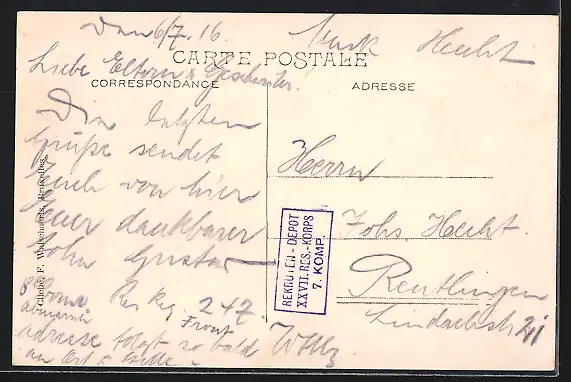 Den 6/7. 16.
CARTE POSTALE
Liebe Eltern & Geschwister!
CORRESPONDANCE
Die letzten
Grüße sendet
Euch von hier
Euer dankbarer
Sohn Gustav
Res Reg 247
Front
adresse folgt so bald
an Ort & Stelle
Cliché F. Walschaerts, Bruxelles
Hecht
ADRESSE
Herrn
Johs. Hecht.
Reutlingen
Lindachstr 21
Wttbg
REKRUTEN-DEPOT
XXVII. RES.-KORPS
7. KOMP.